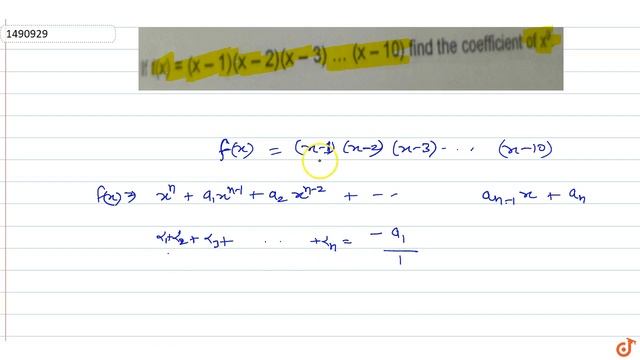 1490929
If f(x) = (x – 1)(x – 2)(x – 3) ... (x – 10) find the coefficient of x⁹
f(x) = (x-1) (x-2) (x-3) - .. (x-10)
f(x) ⇒ xⁿ + a₁xⁿ⁻¹ + a₂xⁿ⁻² + -- aₙ₋₁x + aₙ
α₁+α₂ + α₃ + .. +αₙ = -a₁/1